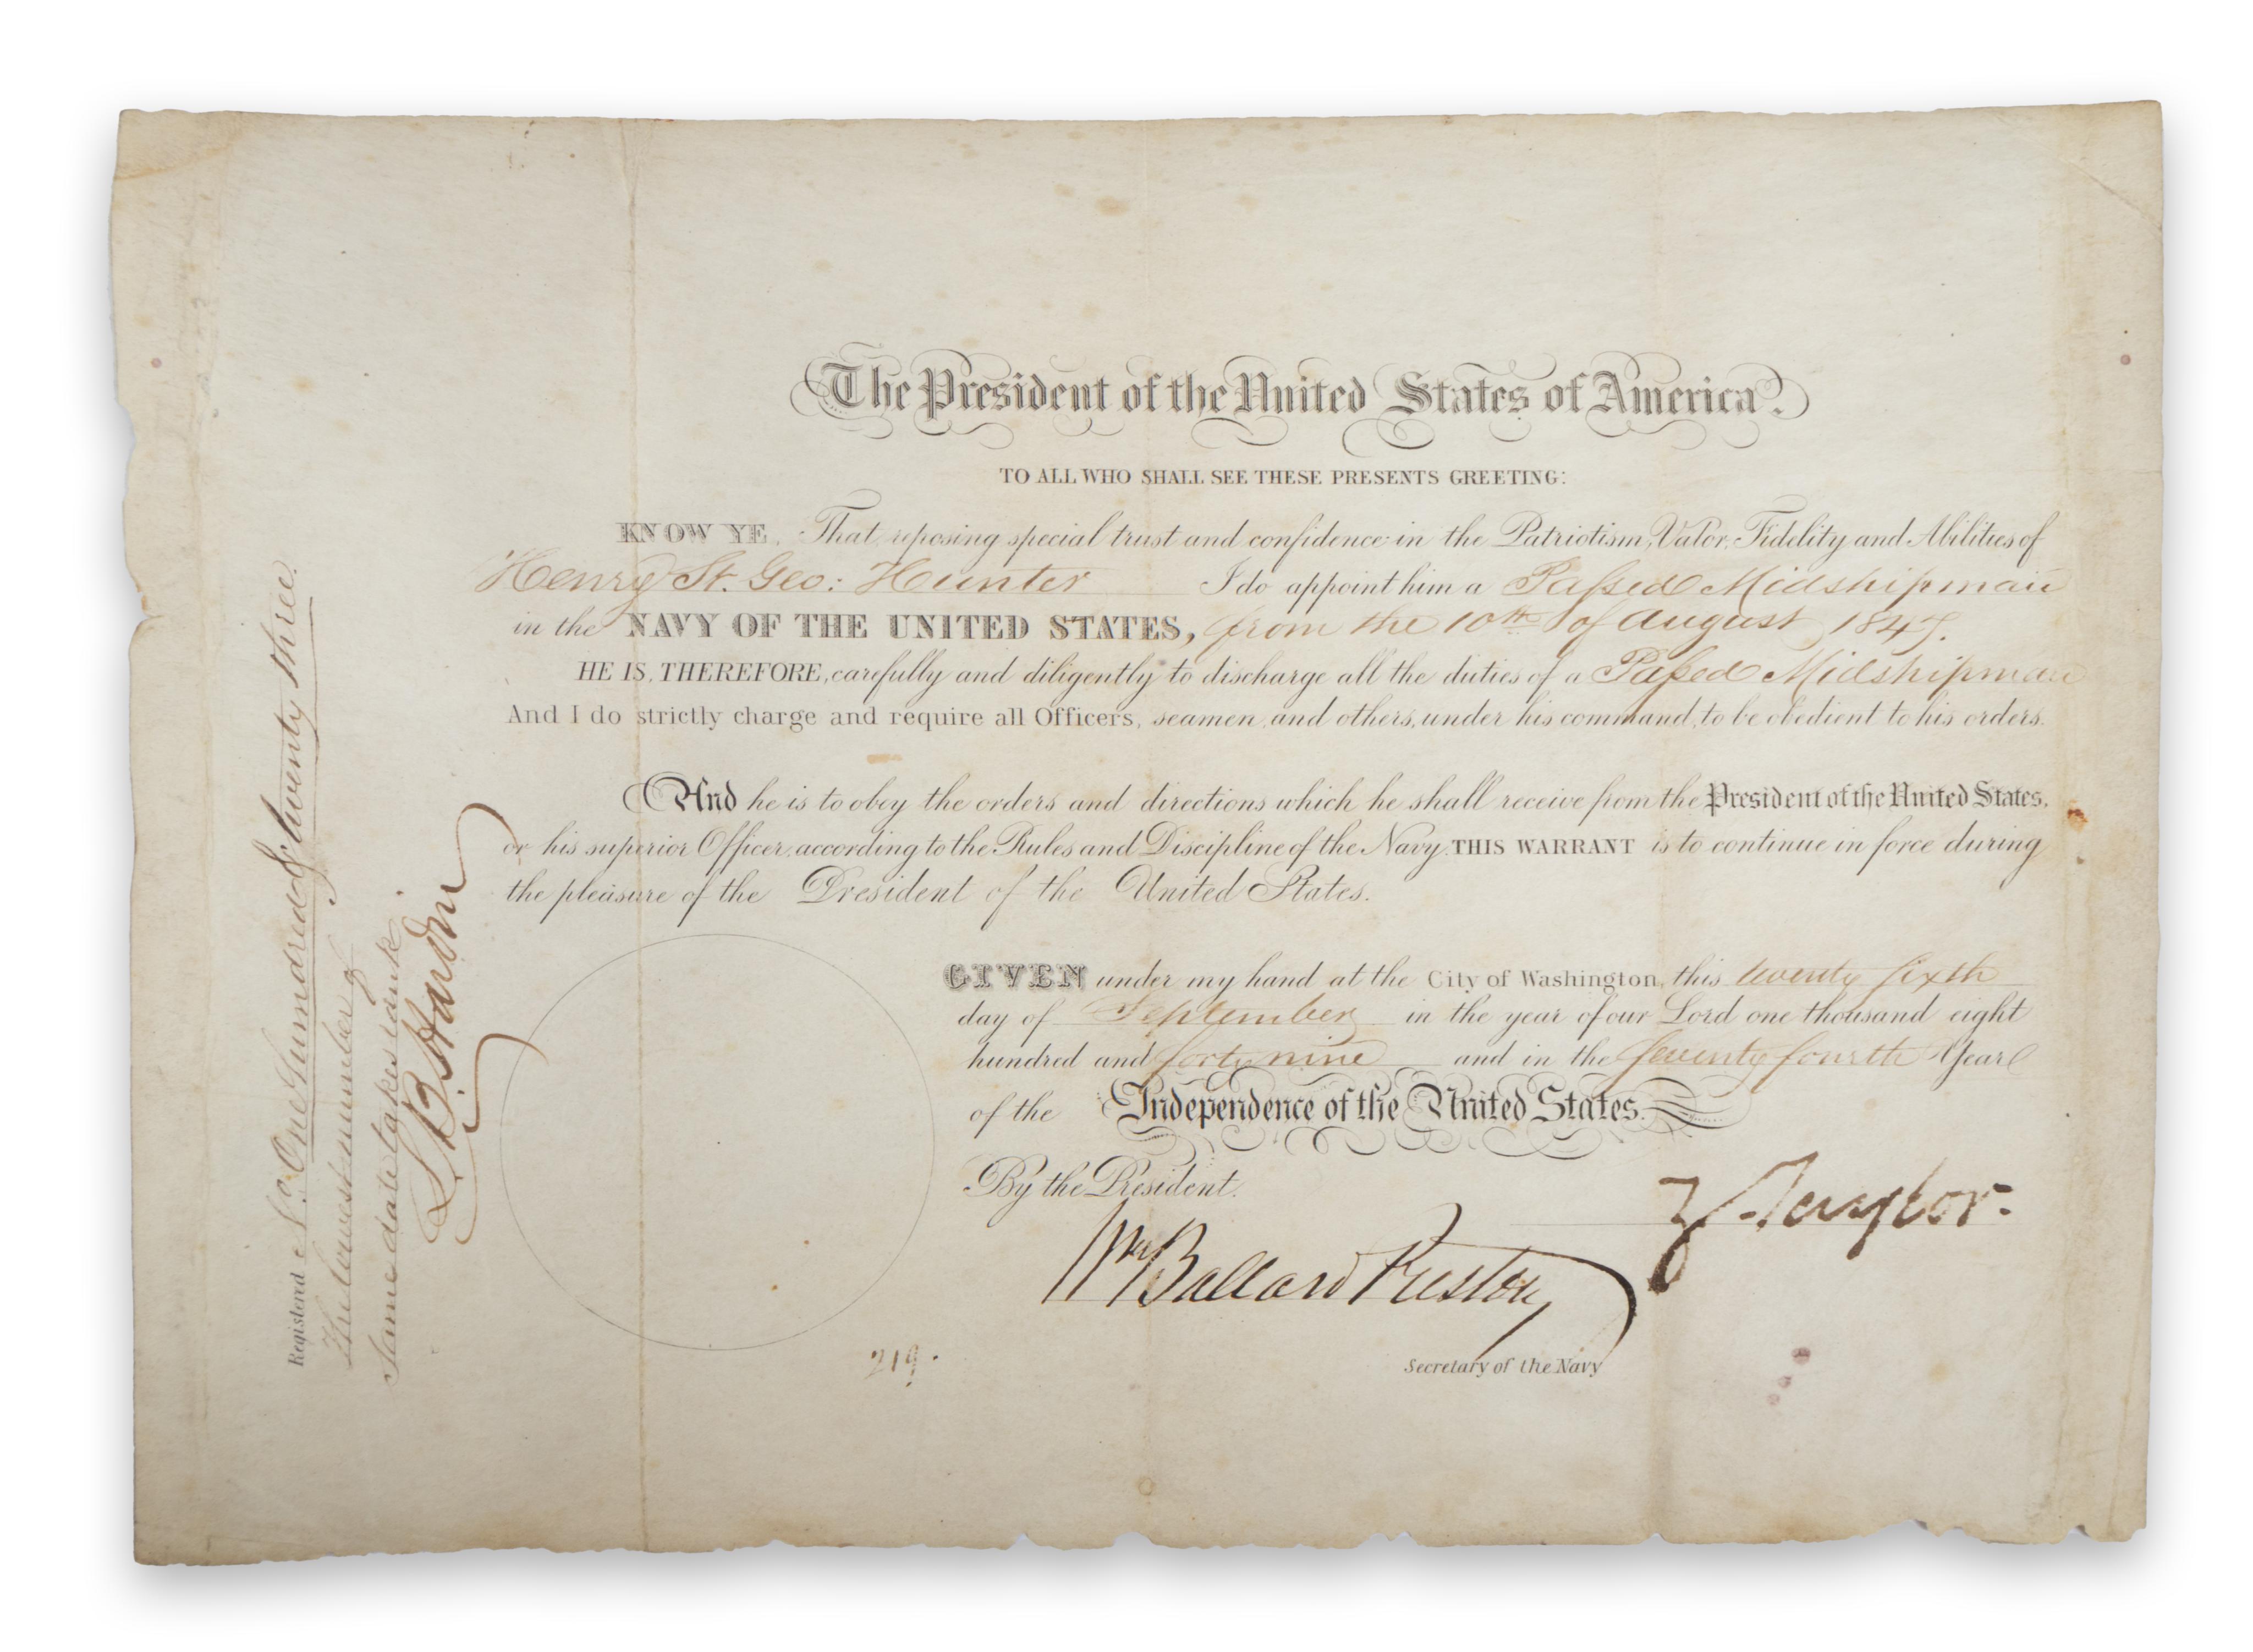 The President of the United States of America.
TO ALL WHO SHALL SEE THESE PRESENTS GREETING:
KNOW YE, That reposing special trust and confidence in the Patriotism, Valor, Fidelity and Abilities of
Henry St. Geo: Hunter I do appoint him a Passed Midshipman
in the NAVY OF THE UNITED STATES, from the 10th of August 1847.
HE IS, THEREFORE, carefully and diligently to discharge all the duties of a Passed Midshipman
And I do strictly charge and require all Officers, seamen, and others, under his command, to be obedient to his orders.
And he is to obey the orders and directions which he shall receive from the President of the United States,
or his superior Officer, according to the Rules and Discipline of the Navy. THIS WARRANT is to continue in force during
the pleasure of the President of the United States.
GIVEN under my hand at the City of Washington, this twenty sixth
day of September in the year of our Lord one thousand eight
hundred and forty nine and in the seventy fourth Year
of the Independence of the United States.
By the President.
Z. Taylor.
Wm Ballard Preston,
Secretary of the Navy
219.
Registered No. One Hundred & twenty three.
The lowest number of
same date takes rank
L. B. Hardin